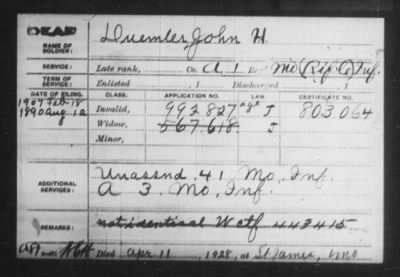 DEAF
NAME OF SOLDIER: Duemler, John H.
SERVICE: Late rank, Co. A, 1 Re Mo (Rif. C) Inf.
TERM OF SERVICE: Enlisted , 1 Discharged , 1
DATE OF FILING. CLASS. APPLICATION NO. LAW CERTIFICATE NO.
1907 Feb-18 Invalid, 992827 age J 803.064
1890 Aug-12 Widow, 567.618. J
Minor,
ADDITIONAL SERVICES: Unassnd 41 Mo. Inf.
A 3. Mo. Inf.
REMARKS: not identical W ctf 443415
Died Apr 11, 1928, at St James, Mo